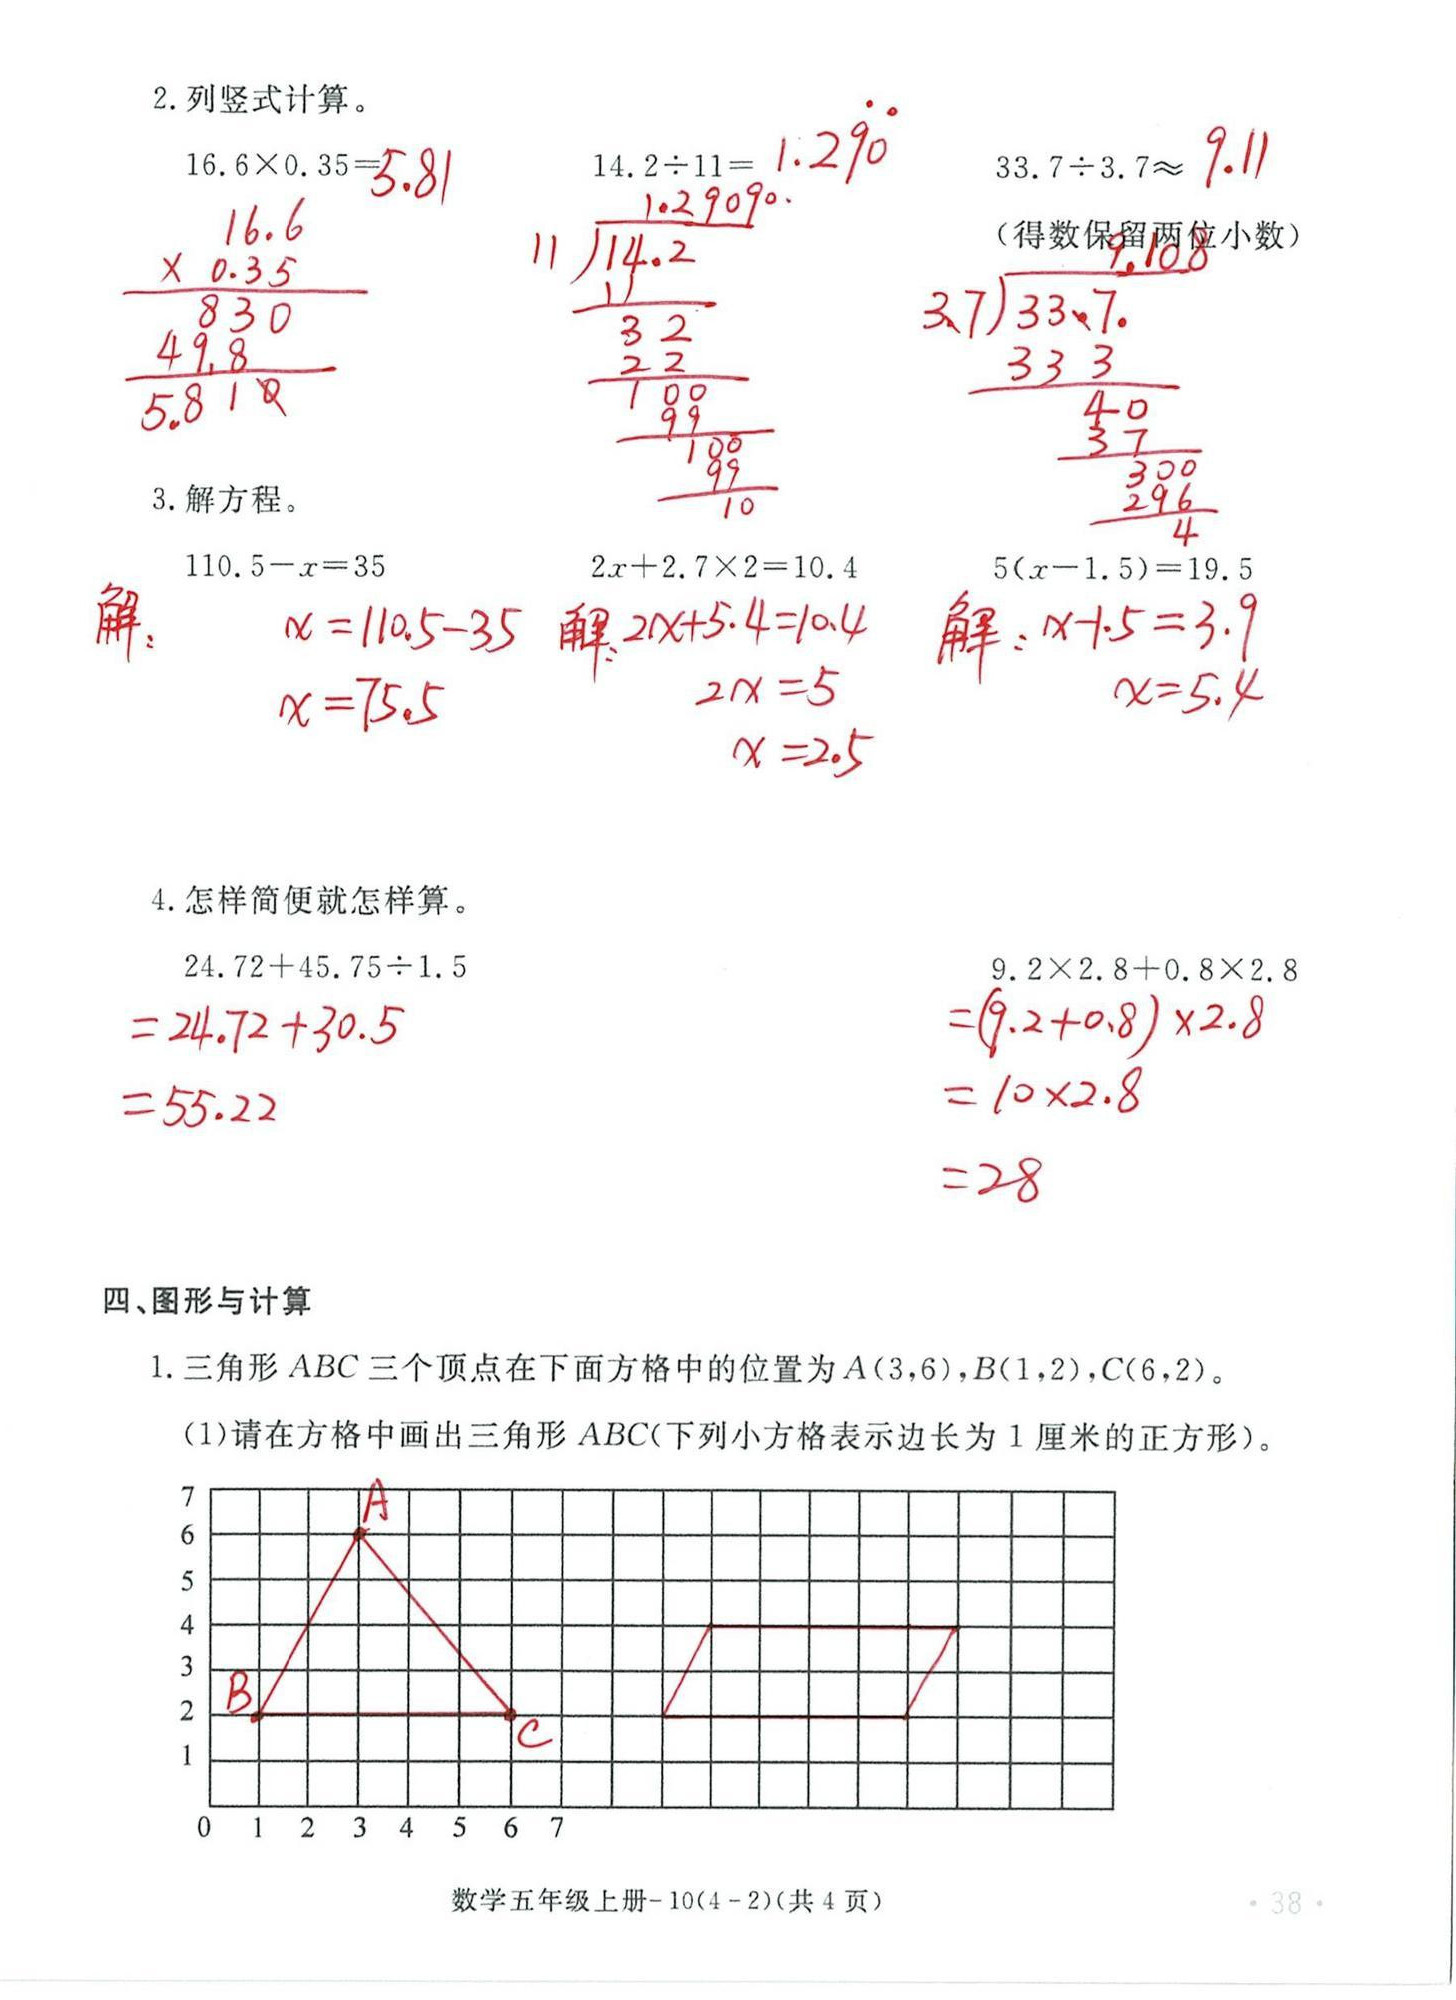 2. 列竖式计算。
16.6×0.35=5.81
14.2÷11=1.29̇0̇
33.7÷3.7≈9.11
(得数保留两位小数)
16.6
× 0.35
830
49.8
5.810
1.29090.
11)14.2
11
32
22
100
99
100
99
10
9.108
3.7)33.7.
333
40
37
300
296
4
3. 解方程。
110.5-x=35
解:
x=110.5-35
x=75.5
2x+2.7×2=10.4
解: 2x+5.4=10.4
2x=5
x=2.5
5(x-1.5)=19.5
解: x-1.5=3.9
x=5.4
4. 怎样简便就怎样算。
24.72+45.75÷1.5
=24.72+30.5
=55.22
9.2×2.8+0.8×2.8
=(9.2+0.8)×2.8
=10×2.8
=28
四、图形与计算
1. 三角形 ABC 三个顶点在下面方格中的位置为 A(3,6),B(1,2),C(6,2)。
(1)请在方格中画出三角形 ABC(下列小方格表示边长为 1 厘米的正方形)。
7
A
6
5
4
3
B
2
C
1
0 1 2 3 4 5 6 7
数学五年级上册-10(4-2)(共 4 页)
·38·